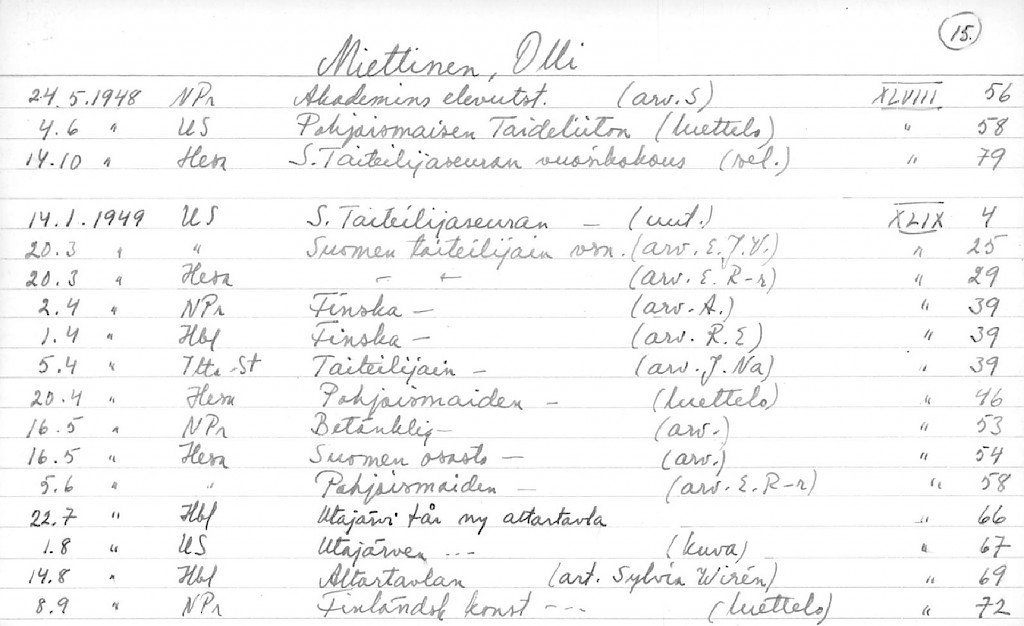 15.
Miettinen, Olli
24.5.1948 NPr Akademins elevutst. (arv. S) XLVIII 56
4.6 " US Pohjoismaisen Taideliiton (luettelo) " 58
14.10 " Hesa S. Taiteilijaseuran vuosikokous (sel.) " 79
14.1.1949 US S. Taiteilijaseuran — (uut.) XLIX 4
20.3 " " Suomen taiteilijain vsn. (arv. E.J.V.) " 25
20.3 " Hesa - " - (arv. E. R-r) " 29
2.4 " NPr Finska — (arv. A.) " 39
1.4 " Hbl Finska — (arv. R.E) " 39
5.4 " Ilta-St Taiteilijain — (arv. J. Na) " 39
20.4 " Hesa Pohjoismaiden — (luettelo) " 46
16.5 " NPr Betänklig — (arv.) " 53
16.5 " Hesa Suomen osasto — (arv.) " 54
5.6 " " Pohjoismaiden — (arv. E. R-r) " 58
22.7 " Hbl Utajärvi får ny altartavla " 66
1.8 " US Utajärven --- (kuva) " 67
14.8 " Hbl Altartavlan (art. Sylvia Wirén) " 69
8.9 " NPr Finländsk konst --- (luettelo) " 72